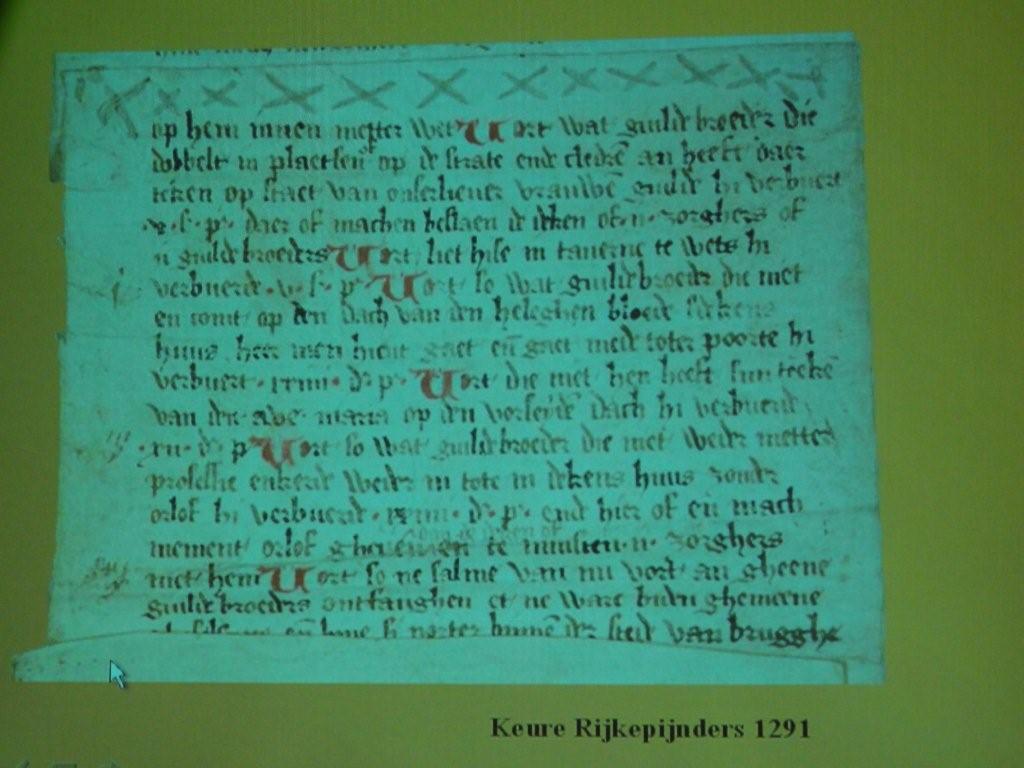 op hem innen metter wet Vort wat guldebroeder die
dobbelt in plaetsen op de strate ende cledre an heeft daer
teken op staet van onser vrauwen gulde hi verbuert
s. p. daer of machen bestaen de deken of .ii. zorghers of
guldebroeders Vort liet hise in taverne te wets hi
verbuerde .v. s. p. Vort so wat guldebroeder die niet
en comt op den dach van den heleghen bloede dekens
huus heer men hieut gaet en gaet mede toter poorte hi
verbuert d. p. Vort die niet hen heeft sin teeken
van der ave maria op den vorseiden dach hi verbuerde
.xii. d. p. Vort so wat guldebroeder die niet weder metter
professie enkeerde weder in tote in dekens huus zonder
orlof hi verbuerde d. p. ende hier of en mach
nement orlof gheven en te .ii. zorghers
met hem Vort so ne salme van nu vort an gheene
guldebroeders ontfanghen et ne ware bi den ghemeene
porter binnen der stede van brugghe
Keure Rijkepijnders 1291